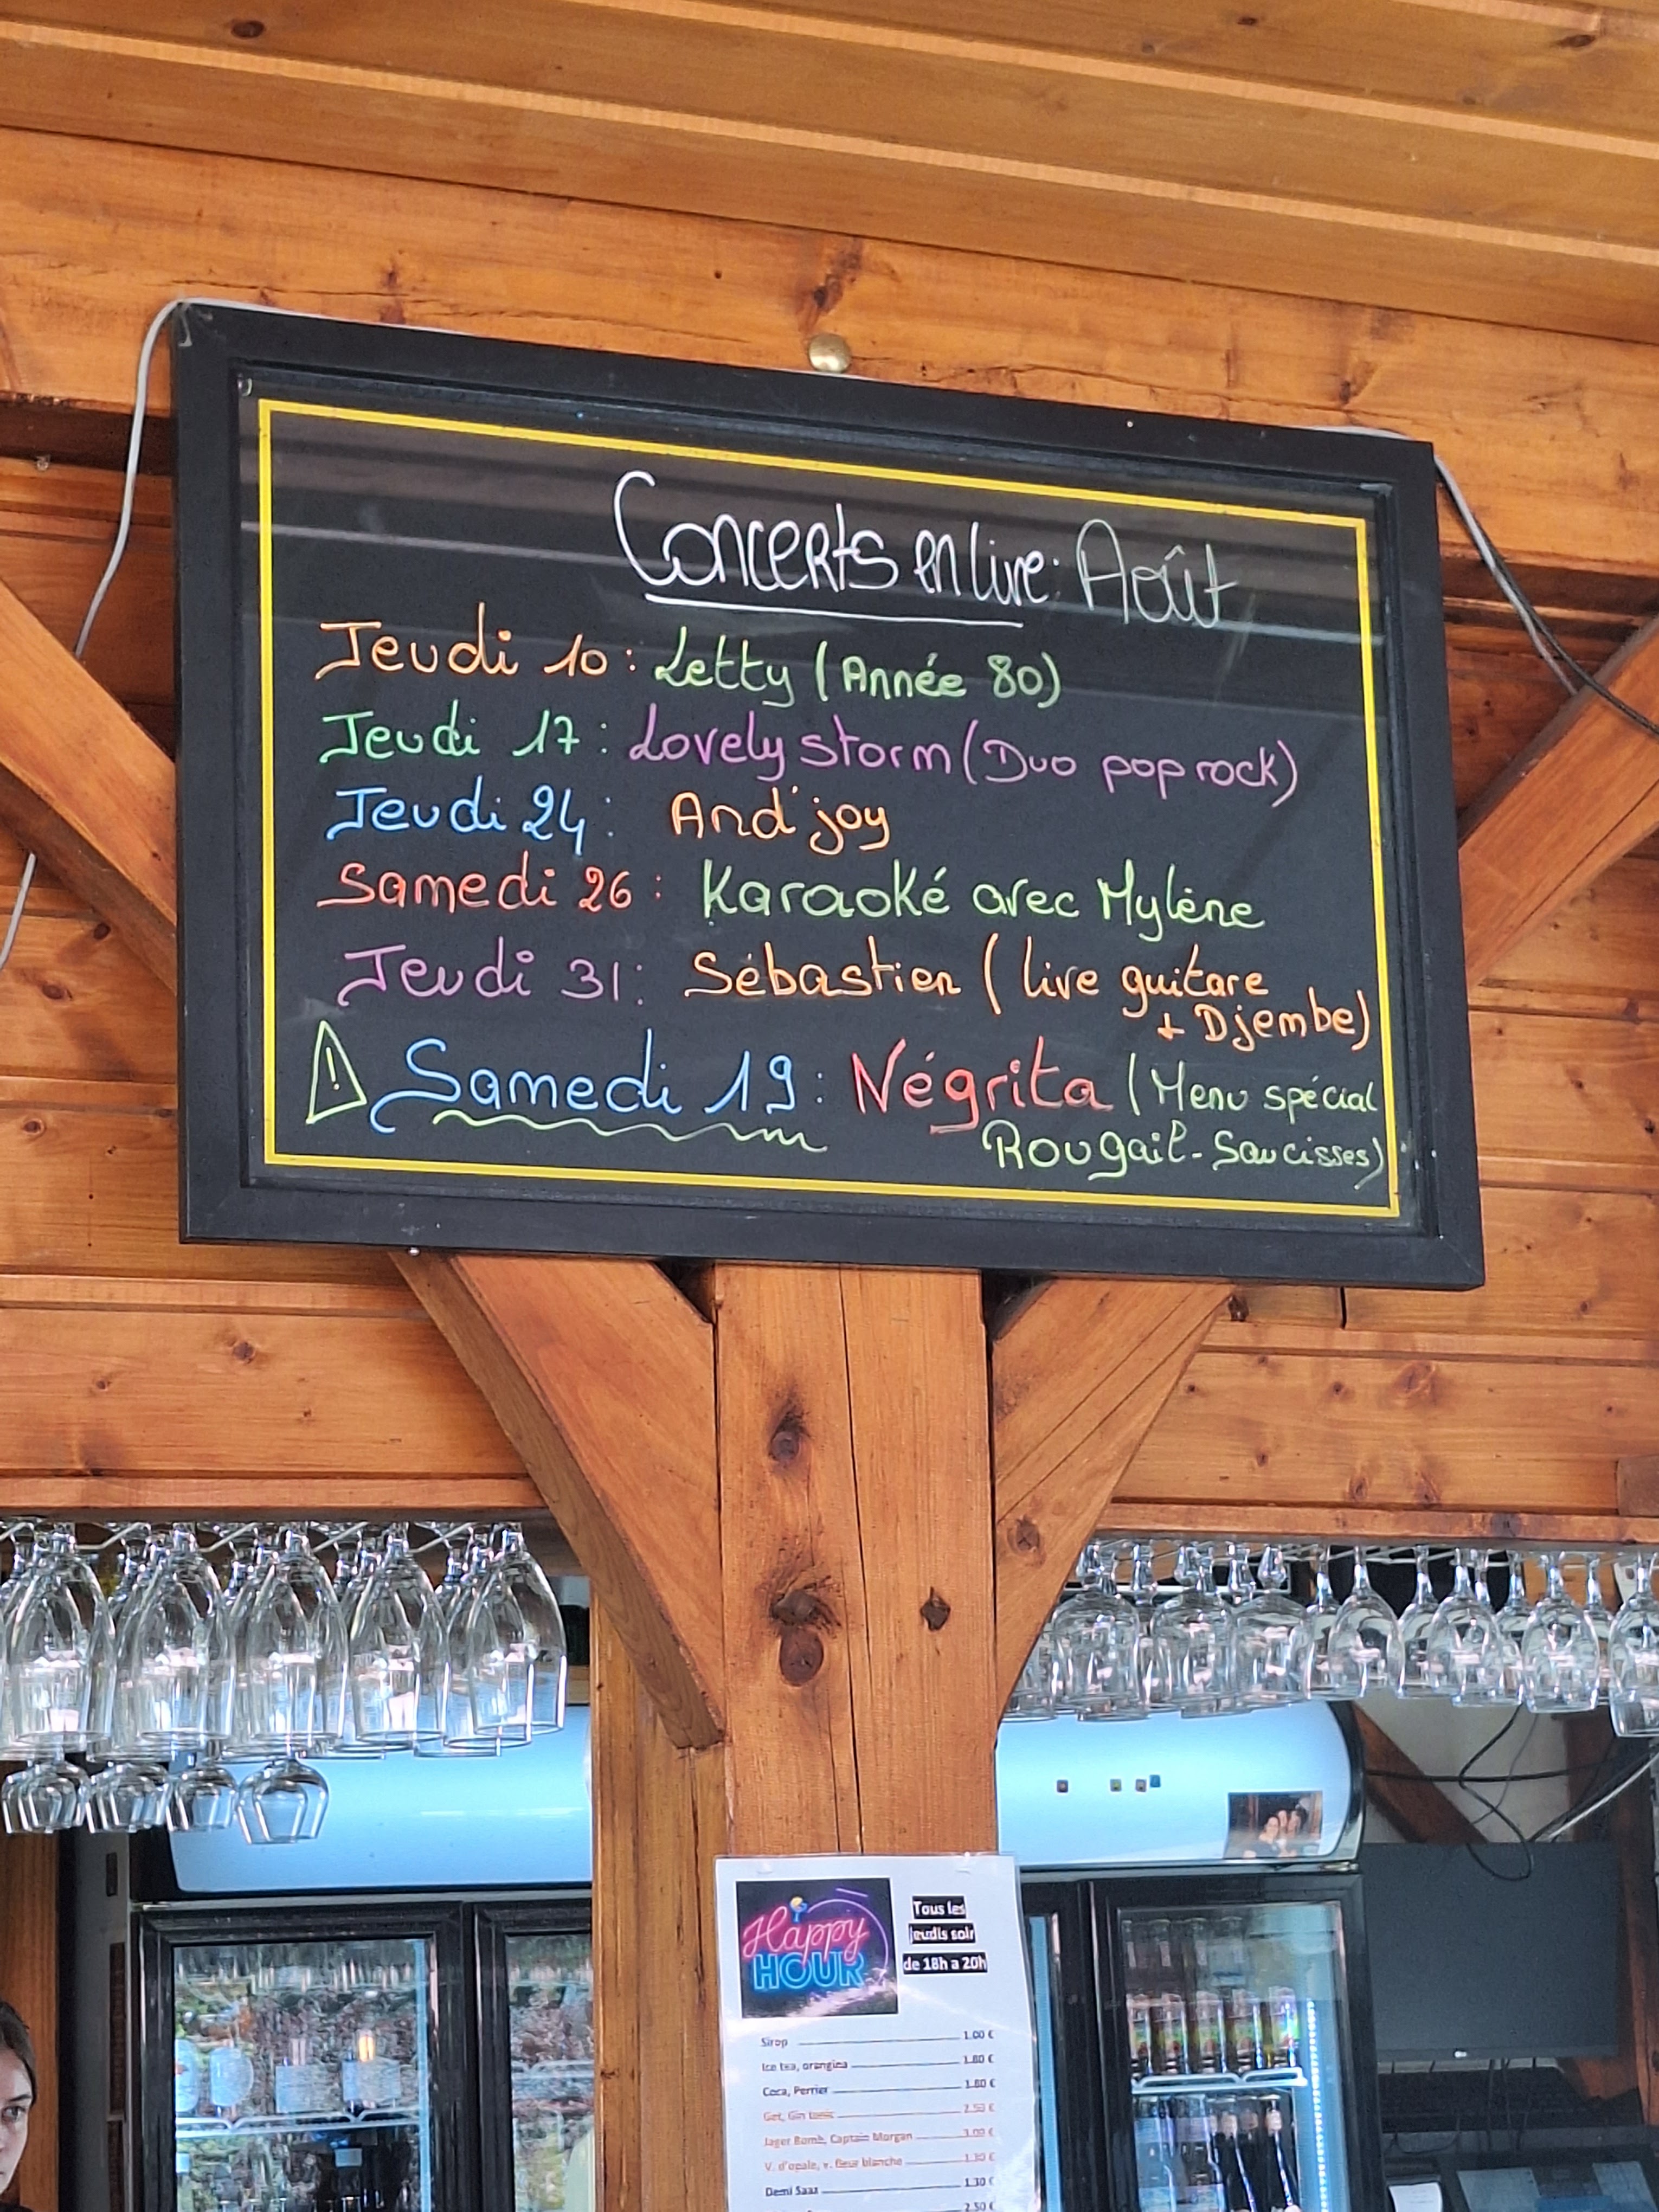 Concerts en live: Août
Jeudi 10: Letty (Année 80)
Jeudi 17: Lovely storm (Duo pop rock)
Jeudi 24: And'joy
Samedi 26: Karaoké avec Mylène
Jeudi 31: Sébastien (live guitare
+ Djembe)
! Samedi 19: Négrita (Menu spécial
Rougail-Saucisses)
Happy
HOUR
Tous les
jeudis soir
de 18h a 20h
Sirop 1.00 €
Ice tea, orangina 1.80 €
Coca, Perrier 1.80 €
Get, Gin tonic 2.50 €
Jager Bomb, Captain Morgan 3.00 €
V. d'opale, v. fleur blanche 1.30 €
Demi Saaz 1.30 €
2.50 €